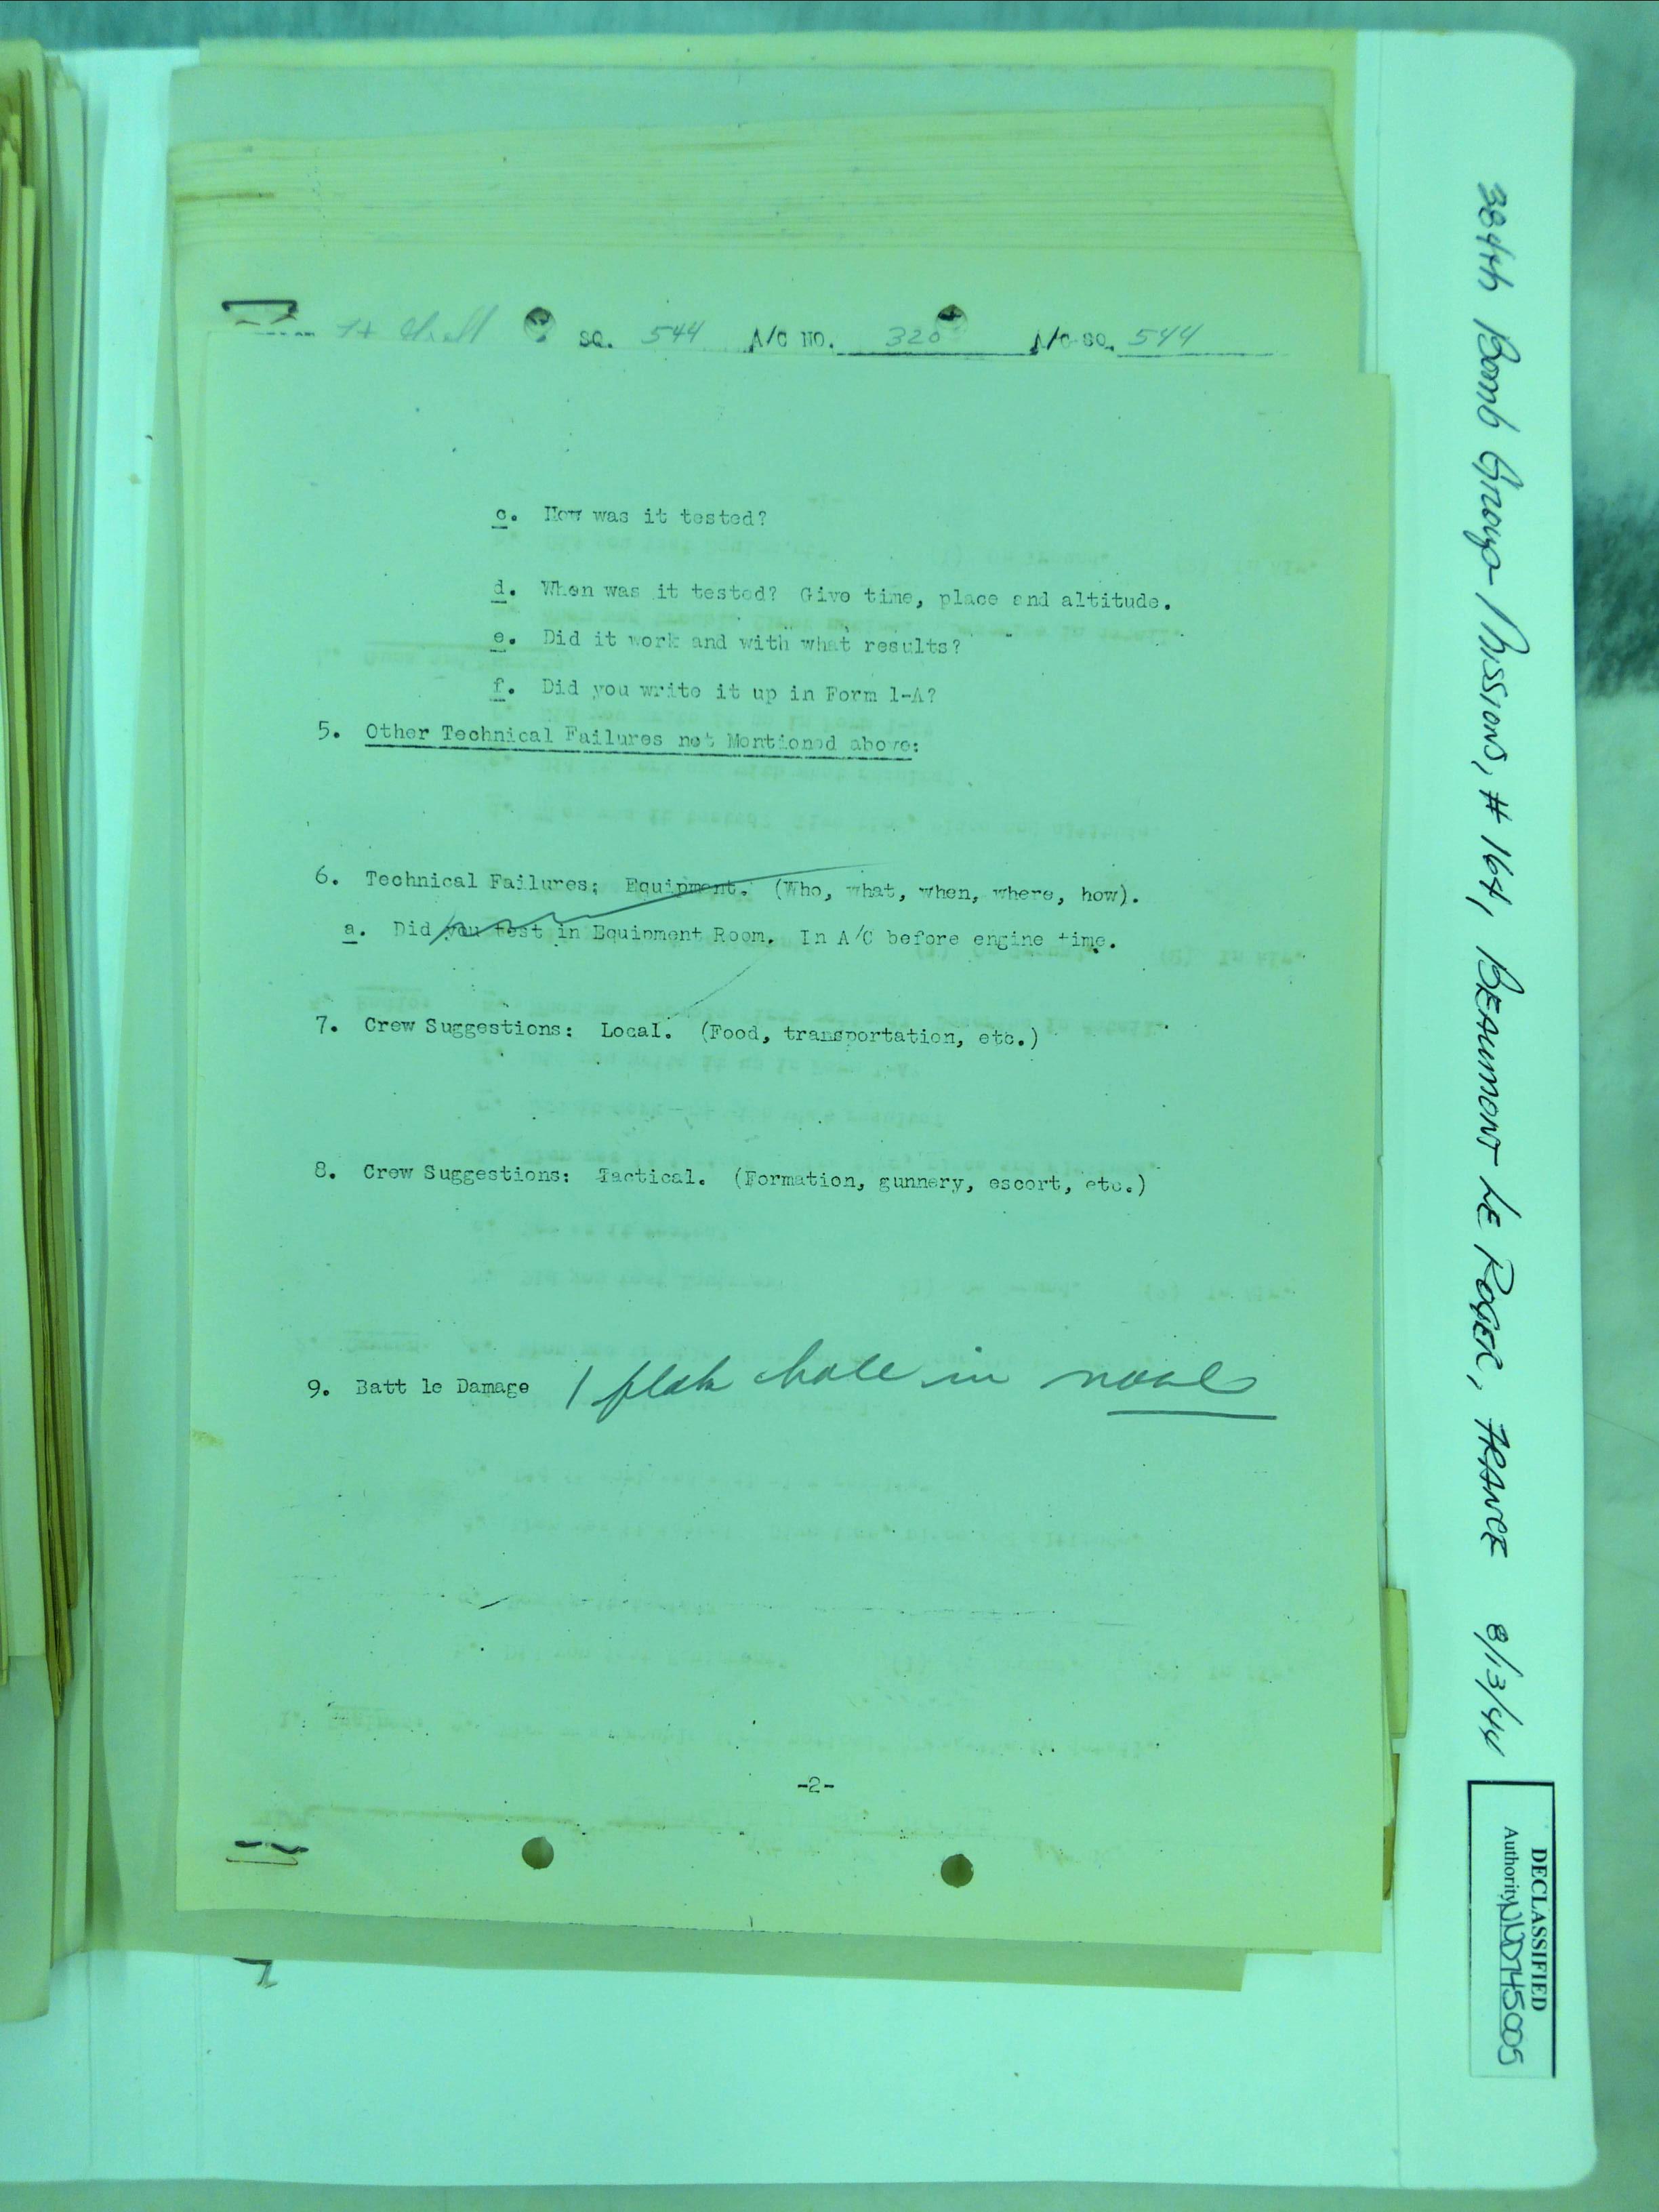 SQ. 544 A/C NO. 320 A/C SQ. 544
c. How was it tested?
d. When was it tested? Give time, place and altitude.
e. Did it work and with what results?
f. Did you write it up in Form 1-A?
5. Other Technical Failures not Mentioned above:
6. Technical Failures: Equipment. (Who, what, when, where, how).
a. Did you test in Equipment Room. In A/C before engine time.
7. Crew Suggestions: Local. (Food, transportation, etc.)
8. Crew Suggestions: Tactical. (Formation, gunnery, escort, etc.)
9. Batt le Damage 1 flak hole in
-2-
384th Bomb Group - Missions, # 164, BEAUMONT LE ROGER, FRANCE 8/13/44
DECLASSIFIED
Authority NND745005